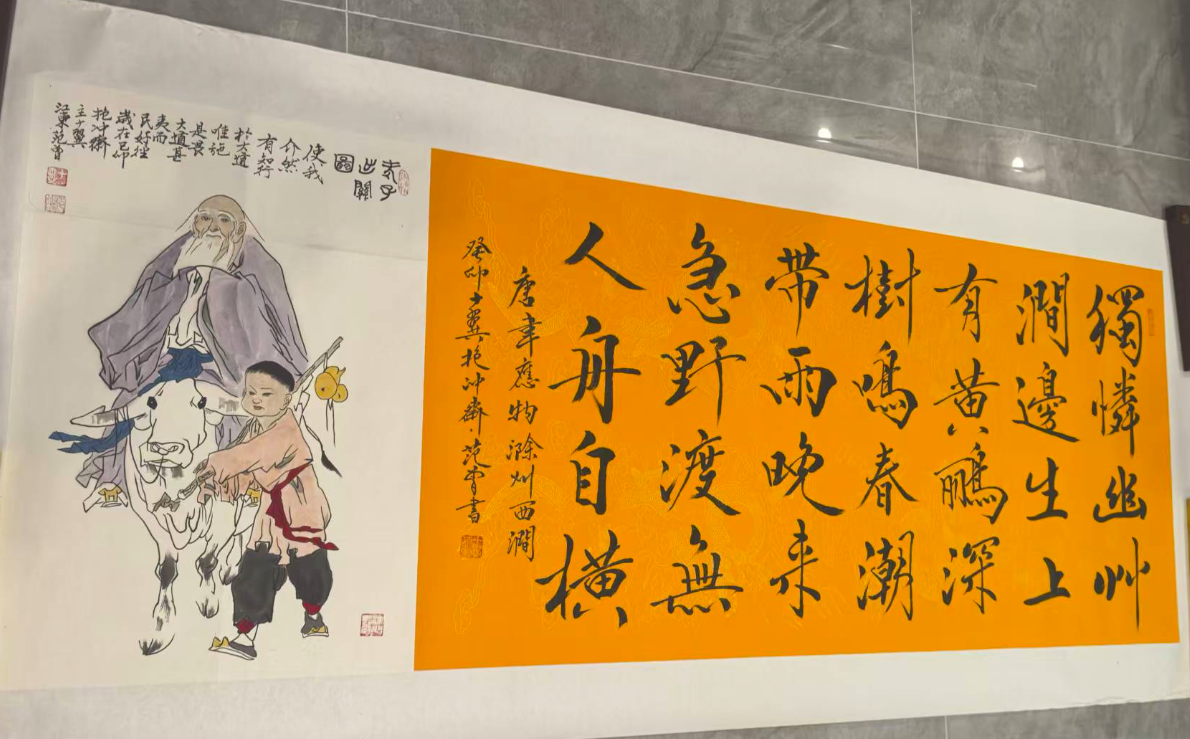 獨憐幽艸
澗邊生上
有黃鸝深
樹鳴春潮
帶雨晚来
急野渡無
人舟自橫
唐韋應物滁州西澗
癸卯十翼抱冲齋·范曾書
老子
出關
圖
使我
介然
有知行
於大道
唯施
是畏
大道甚
夷而
民好徑
歲在己卯
抱冲齋
主十翼
江東范曾